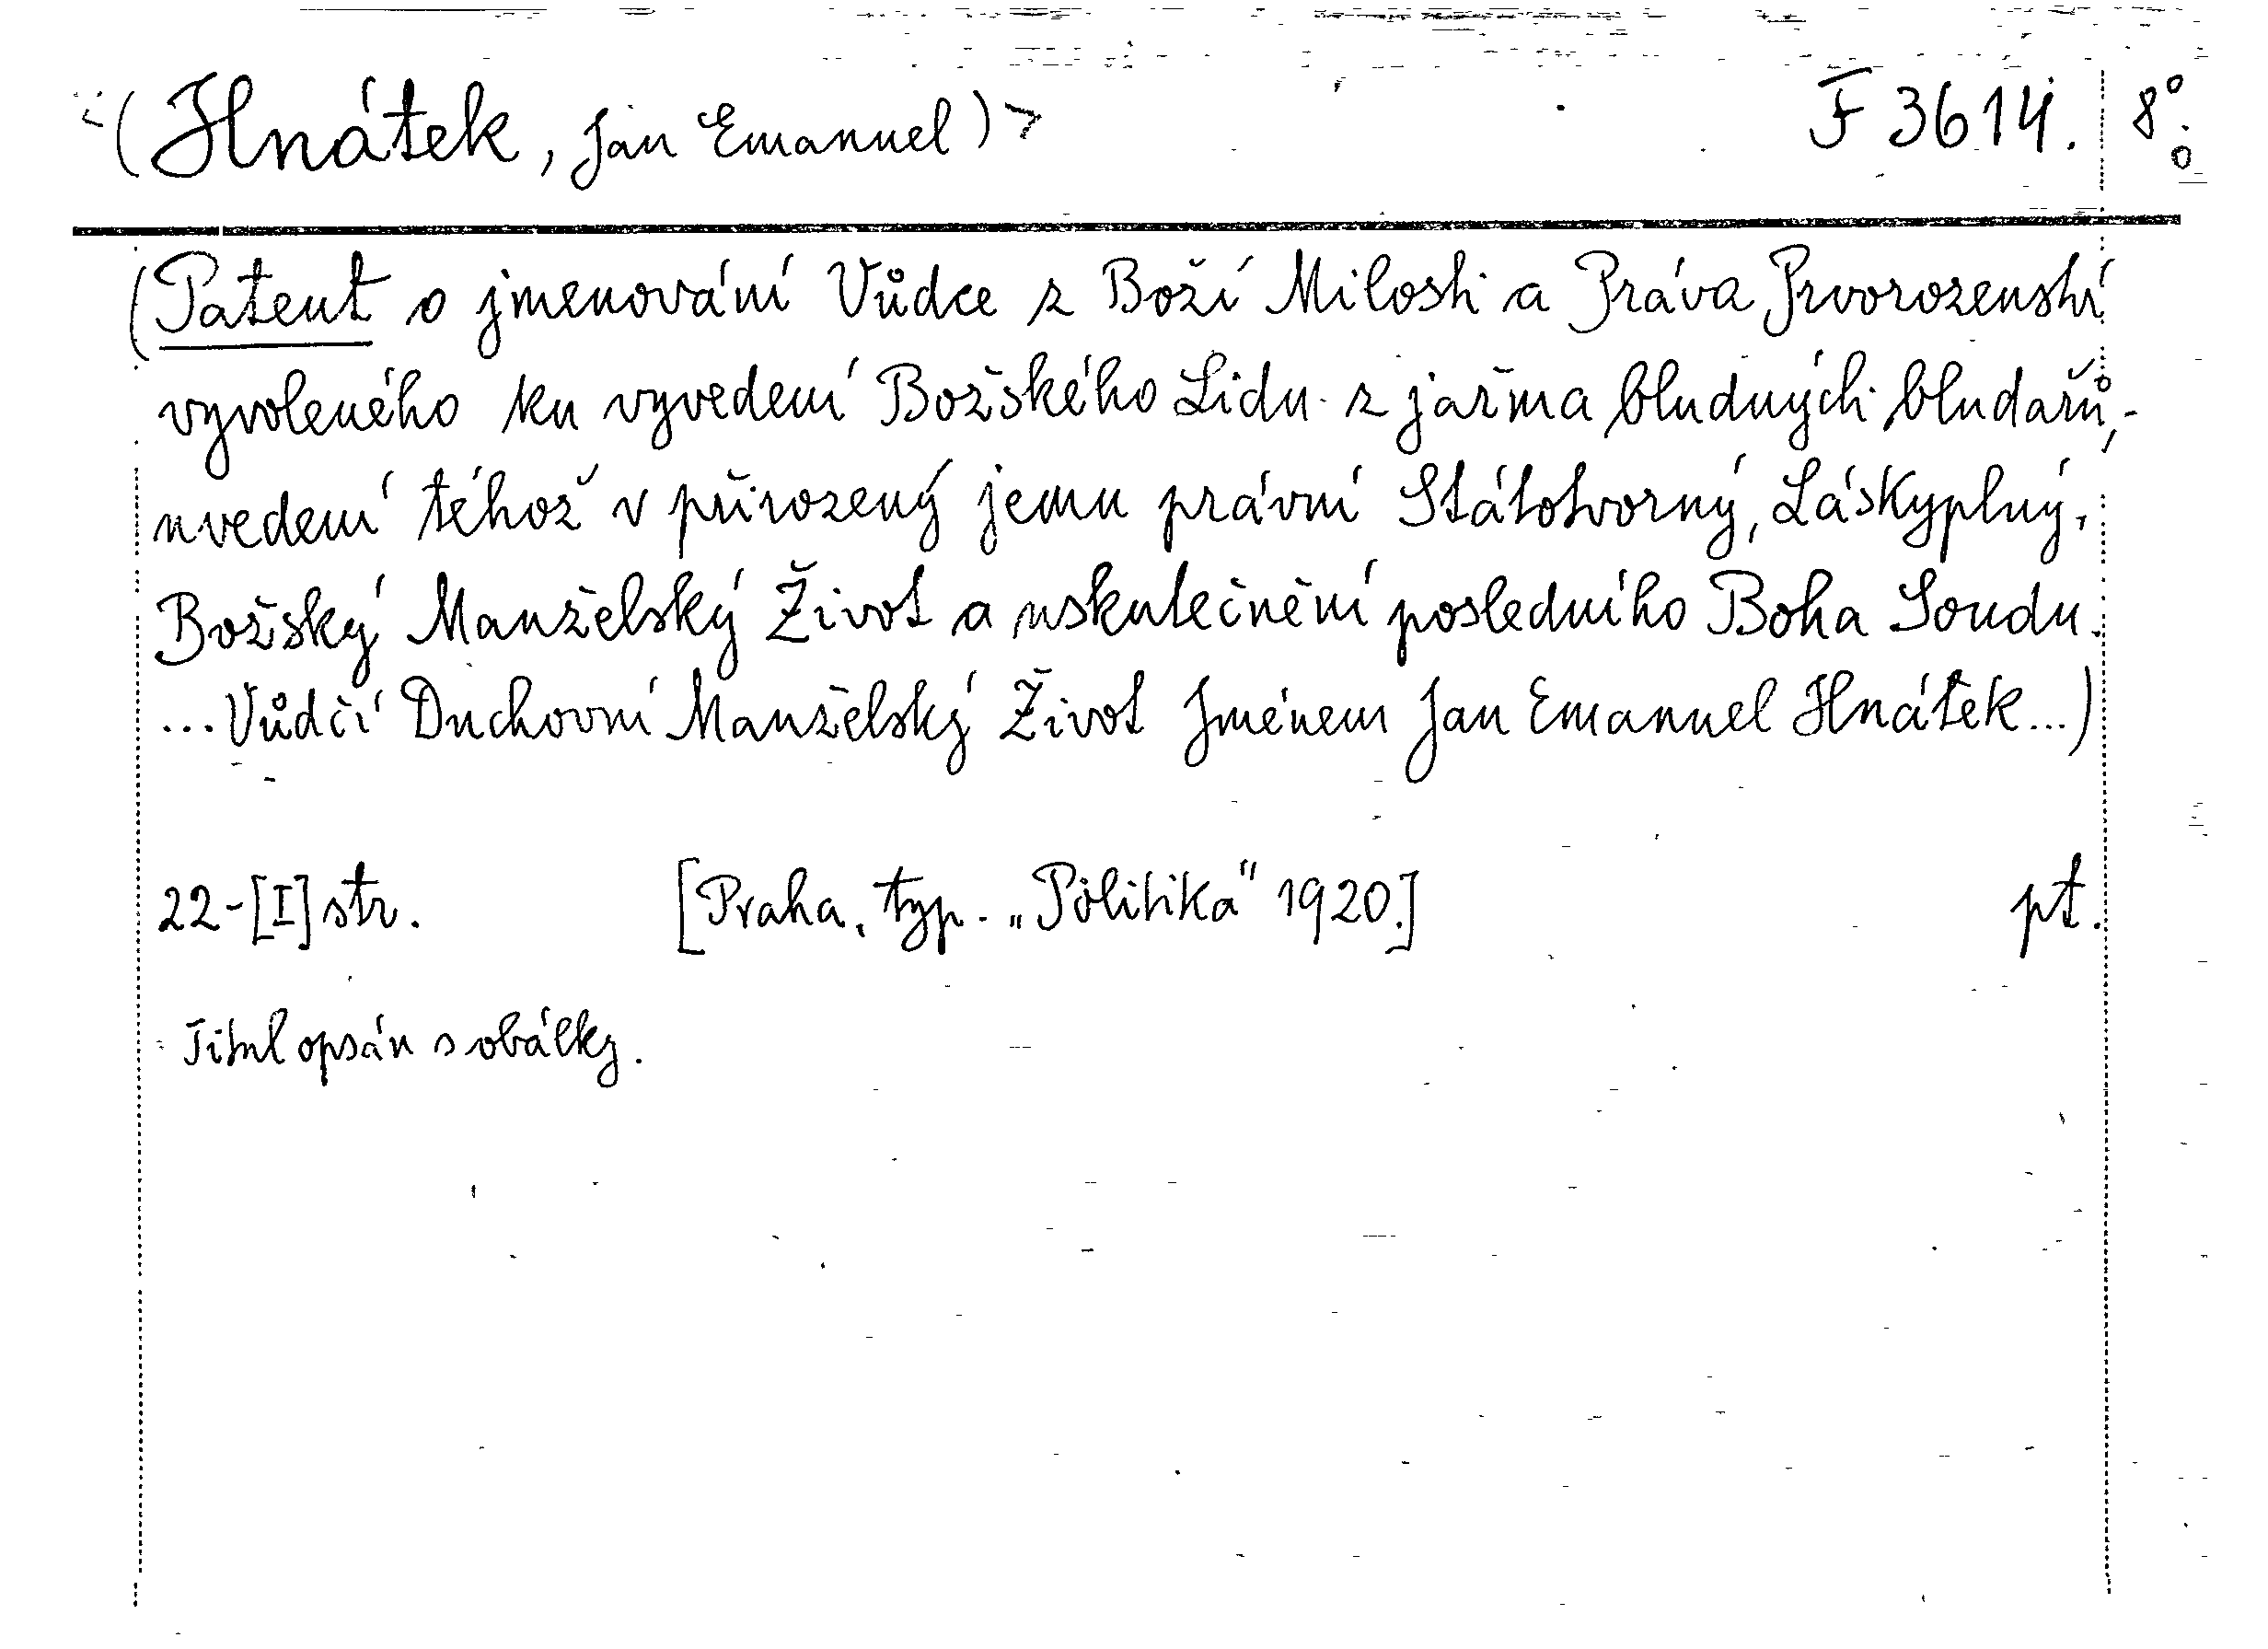 <(Hnátek, Jan Emanuel)> F 3614. 8°.
(Patent o jmenování Vůdce z Boží Milosti a Práva Prvorozenství
vyvoleného ku vyvedení Božského Lidu z jařma bludných bludařů,
uvedení téhož v přirozený jemu právní Státotvorný, Láskyplný,
Božský Manželský Život a uskutečnění posledního Boha Soudu.
...Vůdčí Duchovní Manželský Život Jménem Jan Emanuel Hnátek...)
22-[I] str. [Praha, typ. „Politika" 1920.] pt.
Titul opsán s obálky.